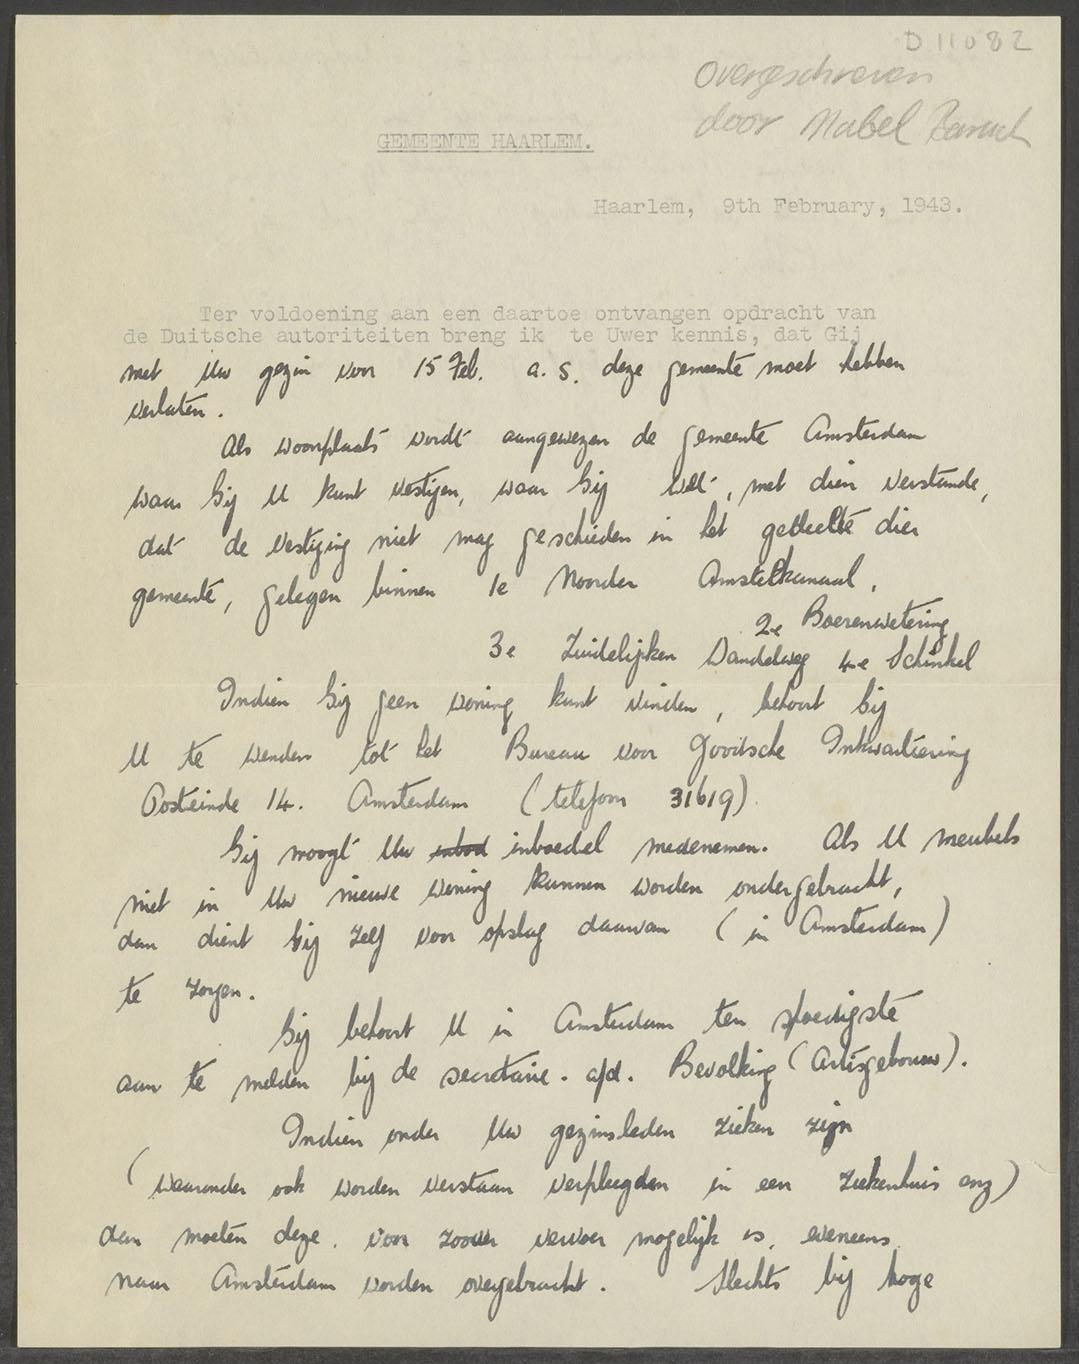 D11082
Overgeschreven
door Mabel
GEMEENTE HAARLEM.
Haarlem, 9th February, 1943.
Ter voldoening aan een daartoe ontvangen opdracht van
de Duitsche autoriteiten breng ik te Uwer kennis, dat Gij
met Uw gezin voor 15 Feb. a.s. deze gemeente moet hebben
verlaten.
Als woonplaats wordt aangewezen de gemeente Amsterdam
waar Gij U kunt vestigen, waar Gij wilt, met dien verstande,
dat de vestiging niet mag geschieden in het gedeelte dier
gemeente, gelegen binnen 1e Noorder Amstelkanaal,
2e Boerenwetering
3e Zuidelijken Wandelweg 4e Schinkel
Indien Gij geen woning kunt vinden, behoort Gij
U te wenden tot het Bureau voor Joodsche Inkwartiering
Oosteinde 14. Amsterdam (telefoon 31619).
Gij moogt Uw inbod inboedel medenemen. Als U meubels
niet in Uw nieuwe woning kunnen worden ondergebracht,
dan dient Gij zelf voor opslag daarvan (in Amsterdam)
te zorgen.
Gij behoort U in Amsterdam ten spoedigste
aan te melden bij de secretarie. afd. Bevolking (Artisgebouw).
Indien onder Uw gezinsleden zieken zijn
(waaronder ook worden verstaan verpleegden in een ziekenhuis enz)
dan moeten deze, voor zoover vervoer mogelijk is, eveneens
naar Amsterdam worden overgebracht. Slechts bij hoge